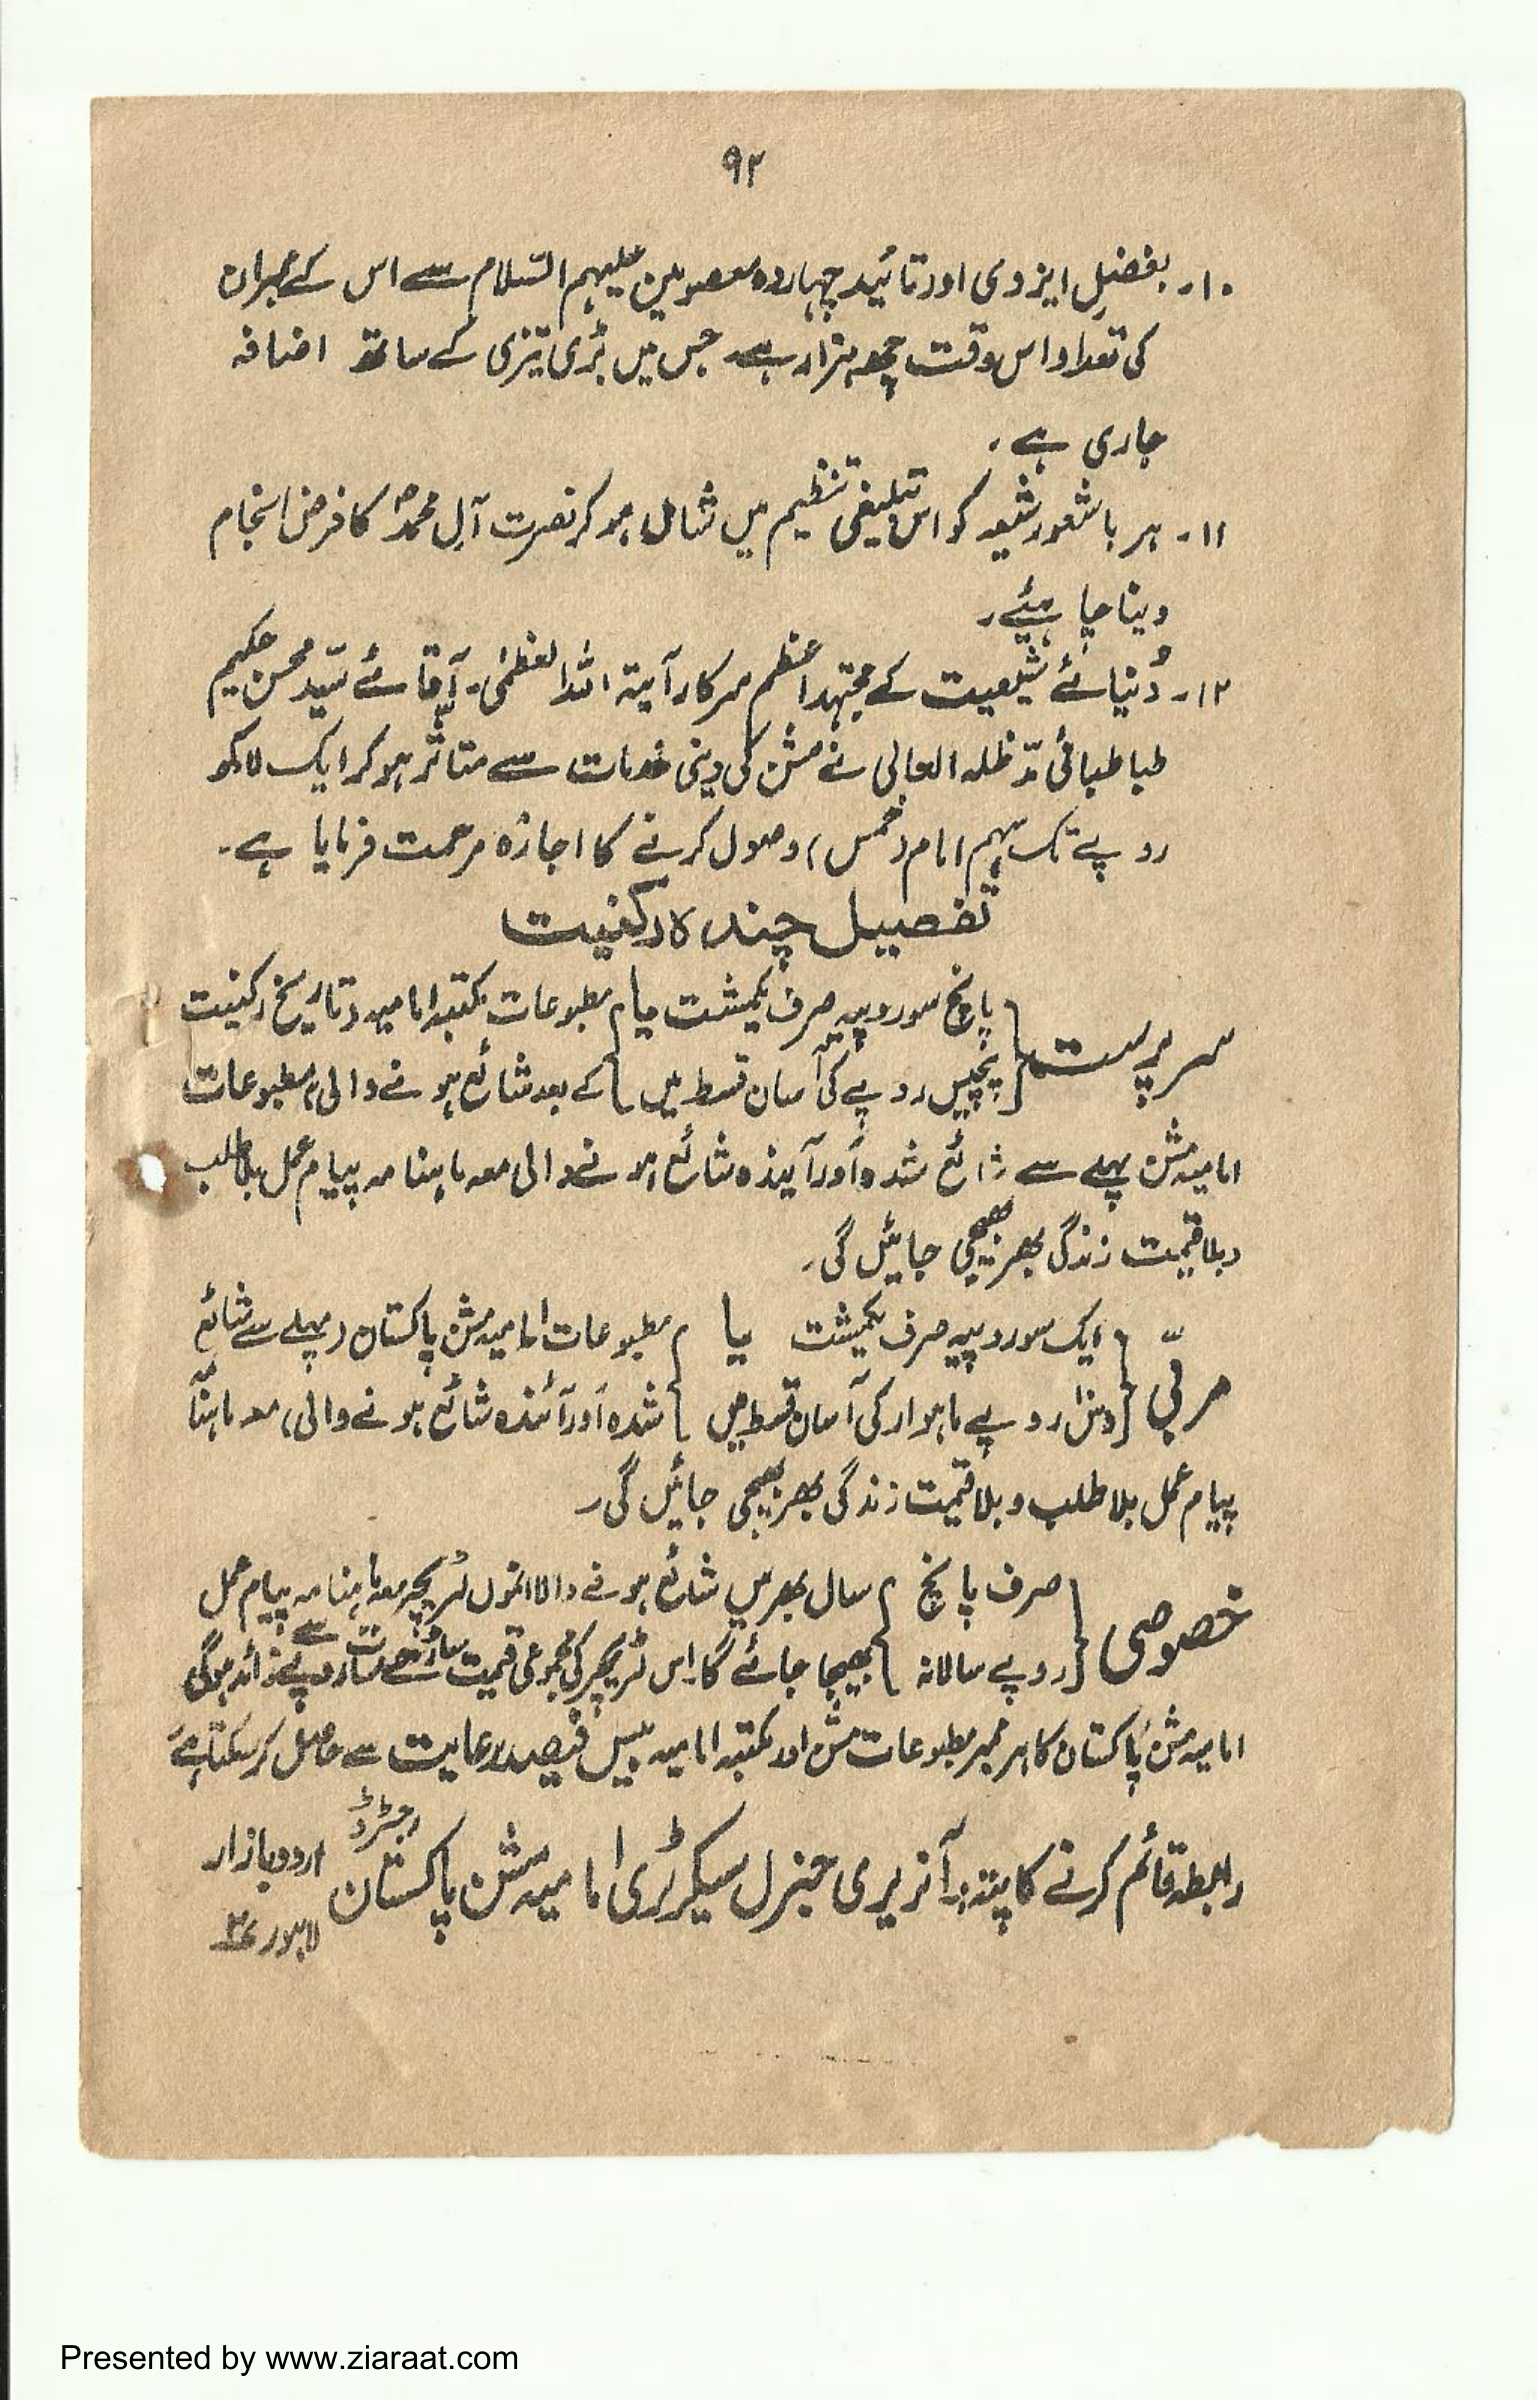 ۹۲
۱۰۔ بفضلِ ایزدی اور تائید چہاردہ معصومین علیہم السّلام سے اس کے ممبران
کی تعداد اس وقت چھ ہزار ہے۔ جس میں بڑی تیزی کے ساتھ اضافہ
جاری ہے۔
۱۱۔ ہر باشعور شیعہ کو اس تبلیغی تنظیم میں شامل ہو کر نصرت آلِ محمدؐ کا فرض انجام
دینا چاہیئے۔
۱۲۔ دُنیائے شیعیت کے مجتہد اعظم سرکار آیۃ اللہ العظمٰی۔ آقائے سیّد محسن حکیم
طباطبائی مدّ ظلہ العالی نے مشن کی دینی خدمات سے متاثر ہو کر ایک لاکھ
روپے تک سہم امام (خمس) وصول کرنے کا اجازہ مرحمت فرمایا ہے۔
تفصیل چندہ رکنیت
سرپرست { پانچ سو روپیہ صرف یکمشت یا } مطبوعات مکتبہ امامیہ (تاریخ رکنیت
پچیس روپے کی آسان قسط میں } کے بعد شائع ہونے والی) مطبوعات
امامیہ مشن پہلے سے شائع شدہ اور آیندہ شائع ہونے والی معہ ماہنامہ پیام عمل بلا طلب
و بلا قیمت زندگی بھر بھیجی جائیں گی۔
مربّی { ایک سو روپیہ صرف یکمشت یا } مطبوعات امامیہ مشن پاکستان (پہلے سے شائع
دس روپے ماہوار کی آسان قسط میں } شدہ اور آئندہ شائع ہونے والی) معہ ماہنامہ
پیام عمل بلا طلب و بلا قیمت زندگی بھر بھیجی جائیں گی۔
خصوصی { صرف پانچ } سال بھر میں شائع ہونے والا انمول لٹریچر معہ ماہنامہ پیام عمل
روپے سالانہ } بھیجا جائے گا۔ اس لٹریچر کی مجموعی قیمت سات روپے سے زائد ہوگی
امامیہ مشن پاکستان کا ہر ممبر مطبوعات مشن اور مکتبہ امامیہ بیس فیصد رعایت سے حاصل کر سکتا ہے
رابطہ قائم کرنے کا پتہ:۔ آنریری جنرل سیکرٹری امامیہ مشن پاکستان رجسٹرڈ اردو بازار
لاہور
Presented by www.ziaraat.com